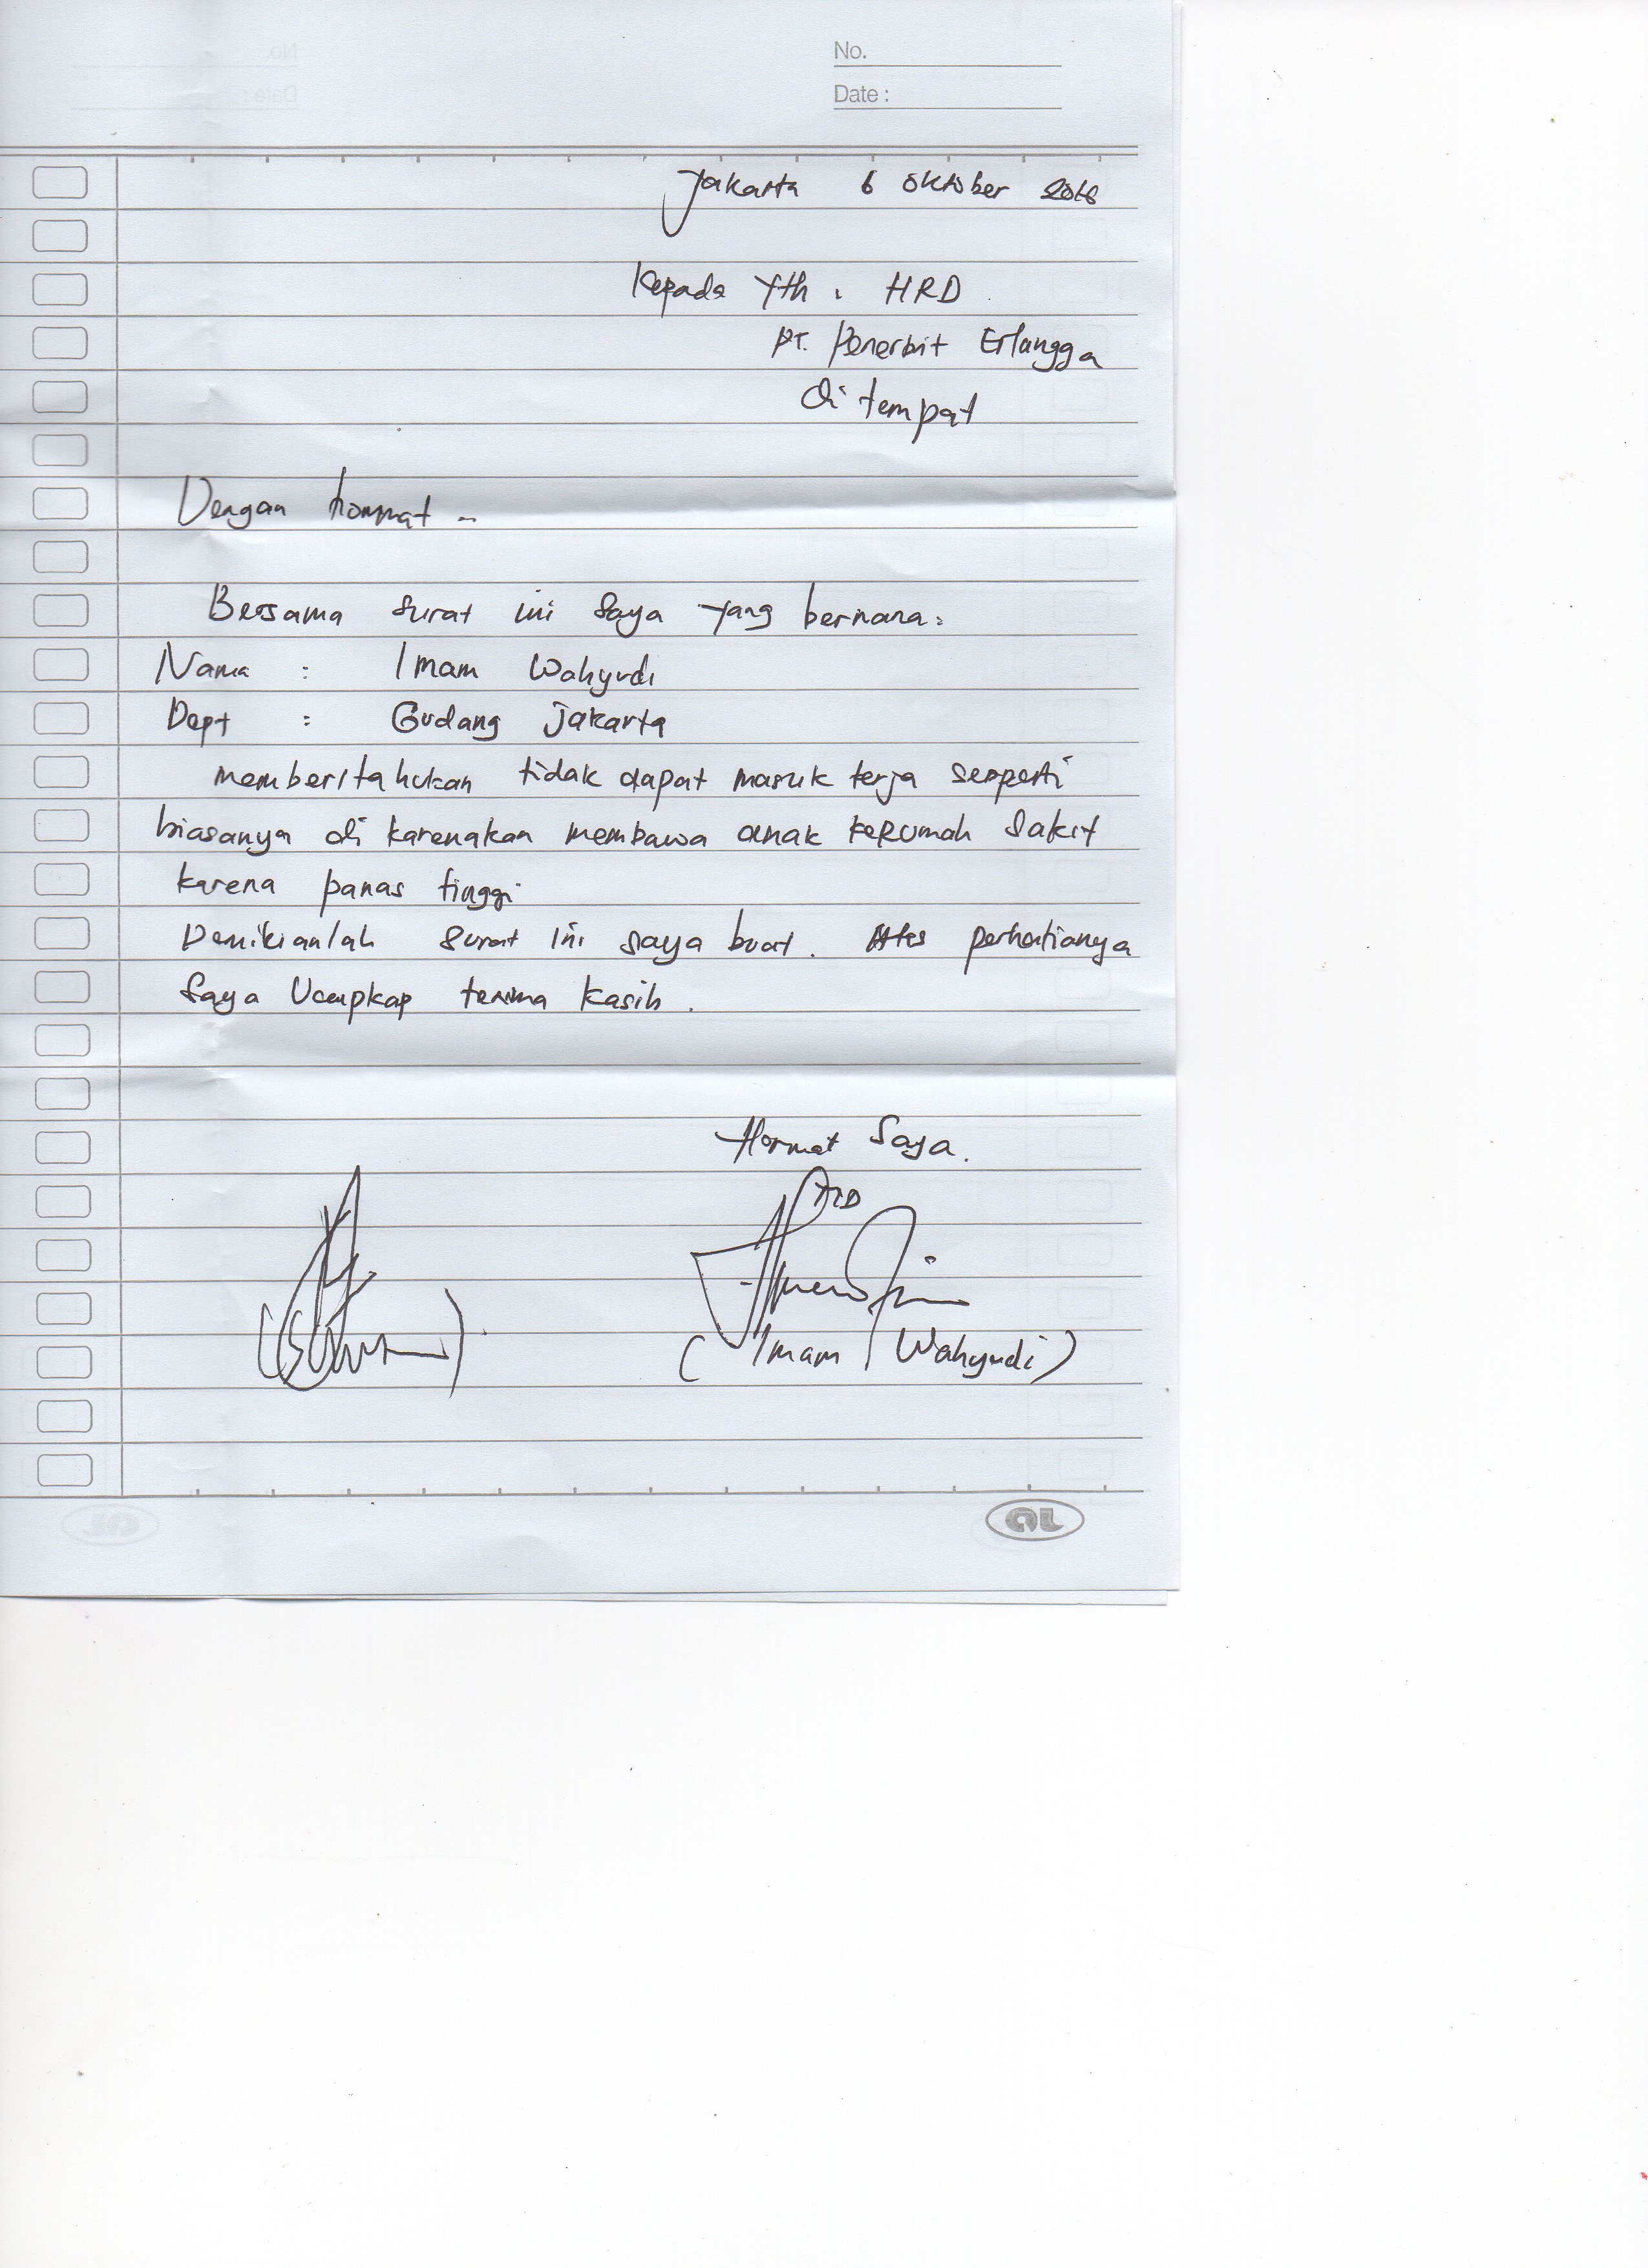 No.
Date :
Jakarta 6 Oktober 2016
Kepada Yth : HRD
PT. Penerbit Erlangga
di tempat
Dengan hormat
Bersama surat ini saya yang bernama:
Nama : Imam Wahyudi
Dept : Gudang Jakarta
memberitahukan tidak dapat masuk kerja serperti
biasanya di karenakan membawa anak keRumah Sakit
karena panas tinggi
Demikianlah surat ini saya buat. Atas perhatianya
Saya Ucapkap terima kasih.
Hormat Saya.
(Imam Wahyudi)